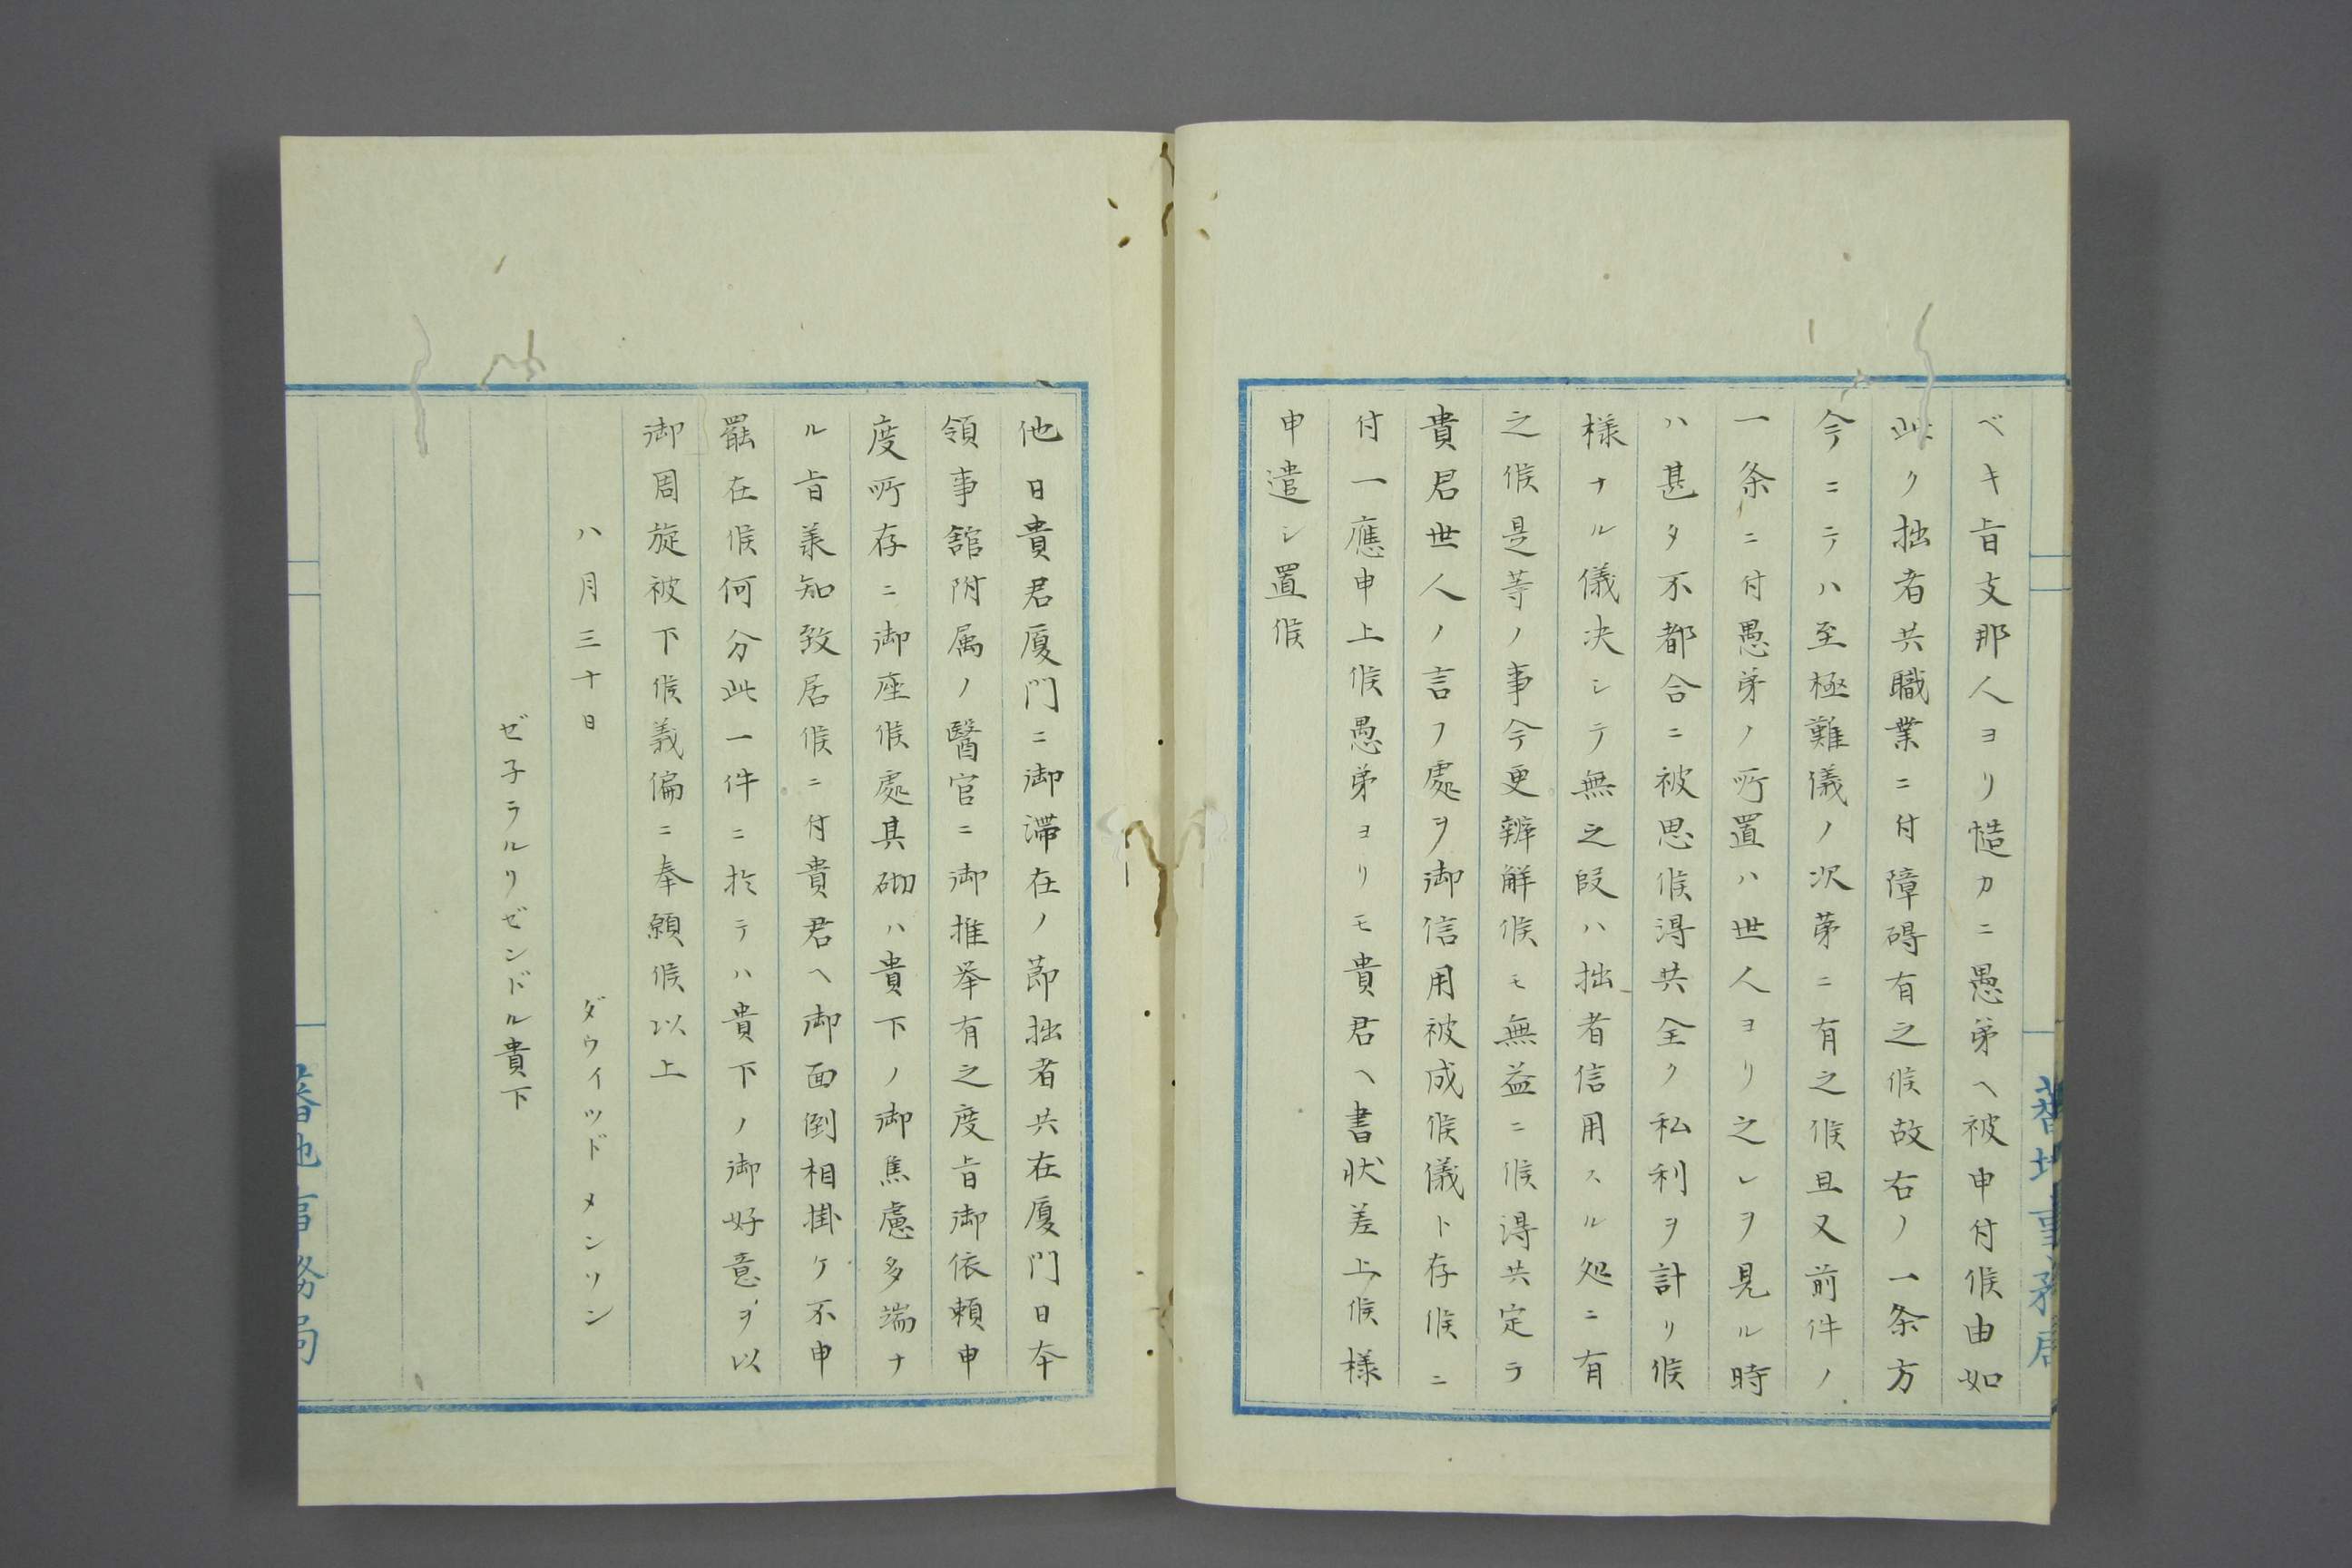 ベキ旨支那人ヨリ慥カニ愚弟ヘ被申付候由如
此ク拙者共職業ニ付障碍有之候故右ノ一条方
今ニテハ至極難儀ノ次第ニ有之候且又前件ノ
一条ニ付愚弟ノ所置ハ世人ヨリ之レヲ見ル時
ハ甚タ不都合ニ被思候得共全ク私利ヲ計リ候
様ナル儀決シテ無之段ハ拙者信用スル処ニ有
之候是等ノ事今更辨解候モ無益ニ候得共定テ
貴君世人ノ言フ處ヲ御信用被成候儀ト存候ニ
付一應申上候愚弟ヨリモ貴君ヘ書状差上候様
申遣シ置候
蕃地事務局
他日貴君厦門ニ御滞在ノ節拙者共在厦門日本
領事舘附属ノ醫官ニ御推挙有之度旨御依頼申
度所存ニ御座候處其砌ハ貴下ノ御焦慮多端ナ
ル旨羕知致居候ニ付貴君ヘ御面倒相掛ケ不申
罷在候何分此一件ニ於テハ貴下ノ御好意ヲ以
御周旋被下候義偏ニ奉願候以上
八月三十日
ダウイツド メンソン
ゼ子ラルリゼンドル貴下
蕃地事務局